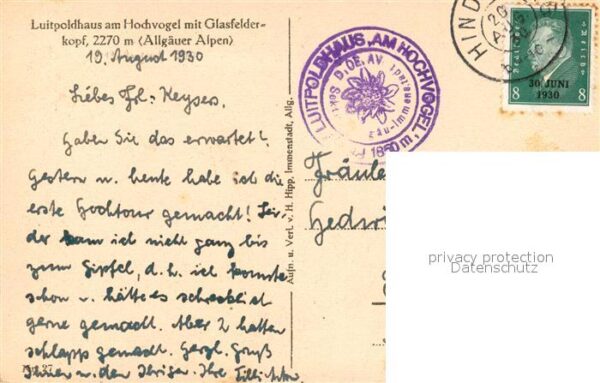 Luitpoldhaus am Hochvogel mit Glasfelder-
kopf, 2270 m (Allgäuer Alpen)
19. August 1930
Liebes Frl. Keyser.
Haben Sie das erwartet?
Gestern u. heute habe ich die
erste Hochtour gemacht! Lei-
der kam ich nicht ganz bis
zum Gipfel, d. h. ich konnte
schon u. hätte es schrecklich
gerne gemacht. Aber 2 hatten
schlapp gemacht. Herzl. Gruß
Ihnen u. den Ihrigen. Ihre
Aufn. u. Verl. v. H. Hipp, Immenstadt, Allg.
LUITPOLDHAUS AM HOCHVOGEL
1850 m.
D. OE. AV
HIND
30. JUNI
1930
8 8
Fräule
Hedwi
privacy protection
Datenschutz